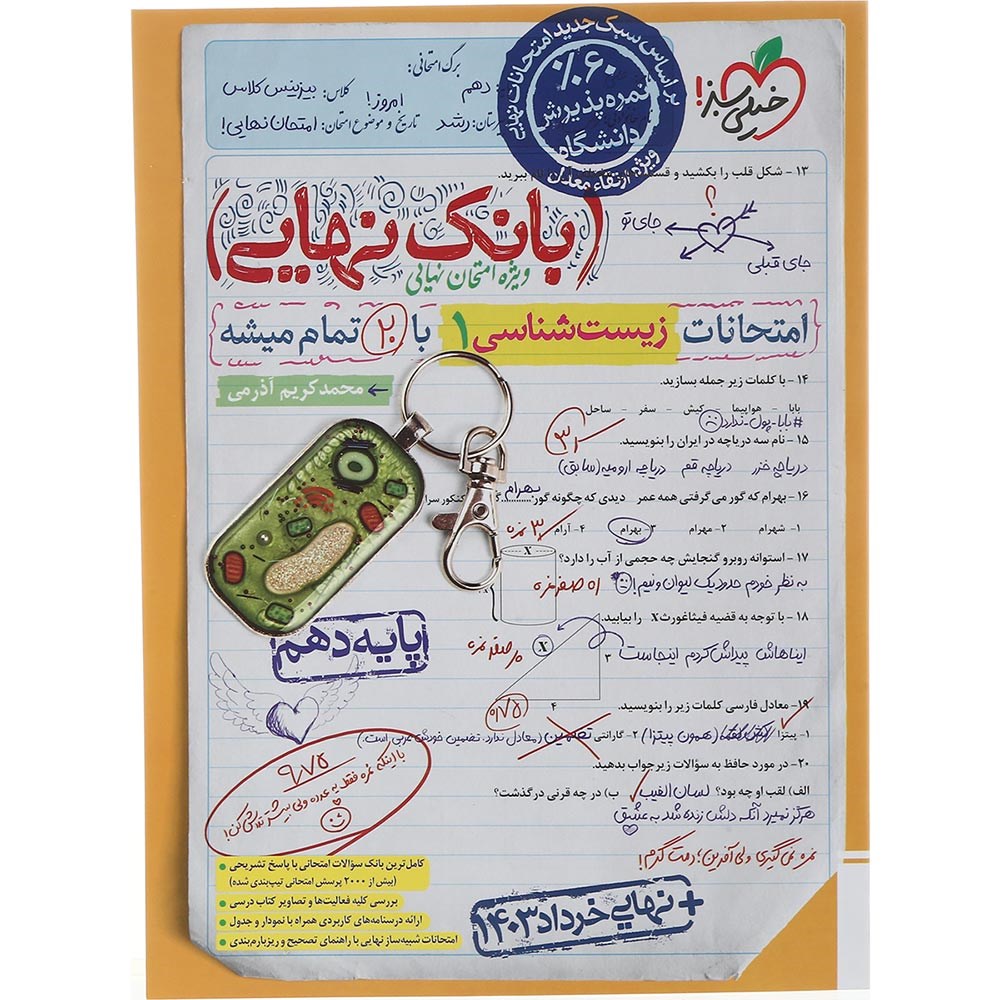 خیلی سبز!
بر اساس سبک جدید امتحانات نهایی
٪۶۰
نمره پذیرش
دانشگاه
ویژه ارتقاء معدل
برگ امتحانی:
دهم
کلاس: بیزینس کلاس
رشد
تاریخ و موضوع امتحان: امروز! امتحان نهایی!
۱۳- شکل قلب را بکشید و
ببرید.
؟
جای تو
جای قبلی
(بانک نهایی)
ویژه امتحان نهایی
امتحانات زیست‌شناسی ۱ با ۲۰ تمام میشه
محمدکریم آذرمی
۱۴- با کلمات زیر جمله بسازید.
بابا - هواپیما - کیش - سفر - ساحل
#بابا-پول-ندارد
۱۵- نام سه دریاچه در ایران را بنویسید.
دریاچه خزر دریاچه قم دریاچه ارومیه (سابق)
۱۶- بهرام که گور می گرفتی همه عمر دیدی که چگونه گور بهرام
۱- شهرام ۲- مهرام ۳- بهرام ۴- آرام
۱۷- استوانه روبرو گنجایش چه حجمی از آب را دارد؟
به نظر خودم حدود یک لیوان و نیم!
X
۱۸- با توجه به قضیه فیثاغورث X را بیابید.
ایناهاش پیداش کردم اینجاست
X
۳
۴
پایه دهم
۰/۷۵
۱۹- معادل فارسی کلمات زیر را بنویسید.
۱- پیتزا (همون پیتزا) ۲- گارانتی تضمین (معادل ندارد. تضمین خودش عربی است.)
۲۰- در مورد حافظ به سؤالات زیر جواب بدهید.
الف) لقب او چه بود؟ لسان الغیب ب) در چه قرنی درگذشت؟
هرگز نمیرد آنکه دلش زنده شد به عشق
نمره نمی‌گیری ولی آفرین؛ دمت گرم!
۹/۷۵
با اینکه نمره فقط یه عدده ولی بیشتر تلاش کن!
کامل‌ترین بانک سؤالات امتحانی با پاسخ تشریحی
(بیش از ۲۰۰۰ پرسش امتحانی تیپ‌بندی شده)
بررسی کلیه فعالیت‌ها و تصاویر کتاب درسی
ارائه درسنامه‌های کاربردی همراه با نمودار و جدول
امتحانات شبیه‌ساز نهایی با راهنمای تصحیح و ریزبارم‌بندی
+ نهایی خرداد ۱۴۰۳